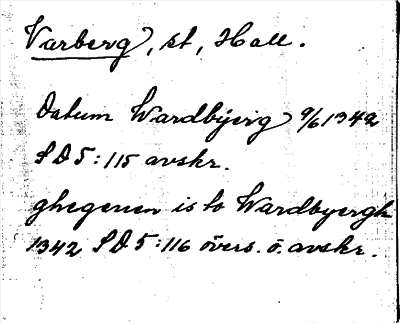 Varberg, st, Hall.
Datum Wardbyerg 9/6 1342
SD 5:115 avskr.
ghegenen is to Wardbyergh
1342 SD 5:116 övers. o. avskr.